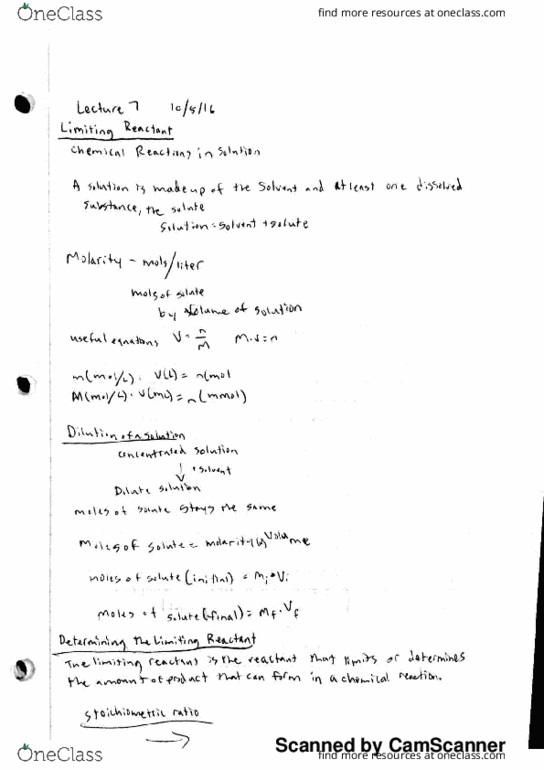 OneClass
find more resources at oneclass.com
Lecture 7 10/5/16
Limiting Reactant
Chemical Reactions in Solution
A solution is made up of the solvent and at least one dissolved
substance, the solute
Solution = solvent + solute
Molarity - mols/liter
mols of solute
by volume of solution
useful equations V = n/M M·V = n
m(mol/L) · V(L) = n(mol
M(mol/L) · V(mL) = n(mmol)
Dilution of a solution
concentrated solution
↓ + solvent
Dilute solution
moles of solute stays the same
Moles of solute = molarity(x) volume
moles of solute (initial) = Mi · Vi
moles of solute (final) = Mf · Vf
Determining the Limiting Reactant
The limiting reactant is the reactant that limits or determines
the amount of product that can form in a chemical reaction.
stoichiometric ratio
→
Scanned by CamScanner
OneClass
find more resources at oneclass.com